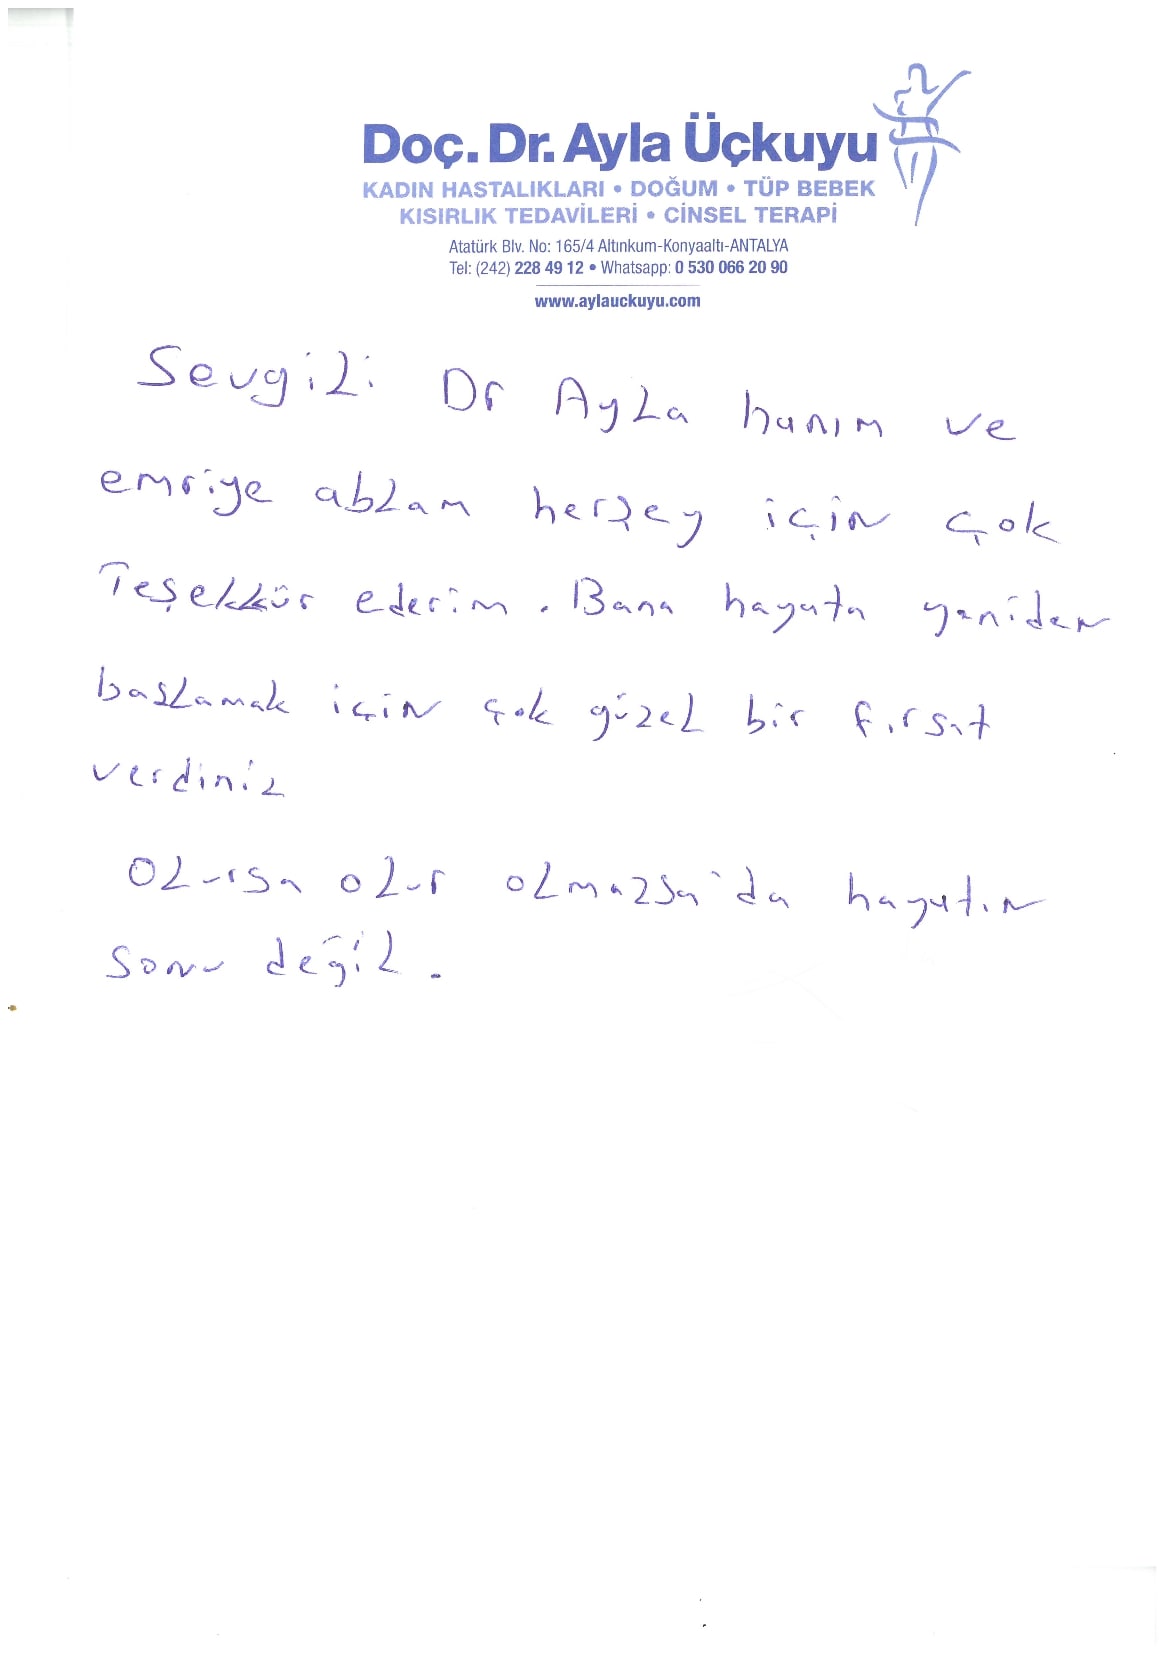 Doç. Dr. Ayla Üçkuyu
KADIN HASTALIKLARI • DOĞUM • TÜP BEBEK
KISIRLIK TEDAVİLERİ • CİNSEL TERAPİ
Atatürk Blv. No: 165/4 Altınkum-Konyaaltı-ANTALYA
Tel: (242) 228 49 12 • Whatsapp: 0 530 066 20 90
www.aylauckuyu.com
Sevgili Dr Ayla hanım ve
emriye ablam herşey için çok
Teşekkür ederim. Bana hayata yeniden
baslamak için çok güzel bir fırsat
verdiniz
Olursa olur olmazsa'da hayatın
sonu değil.